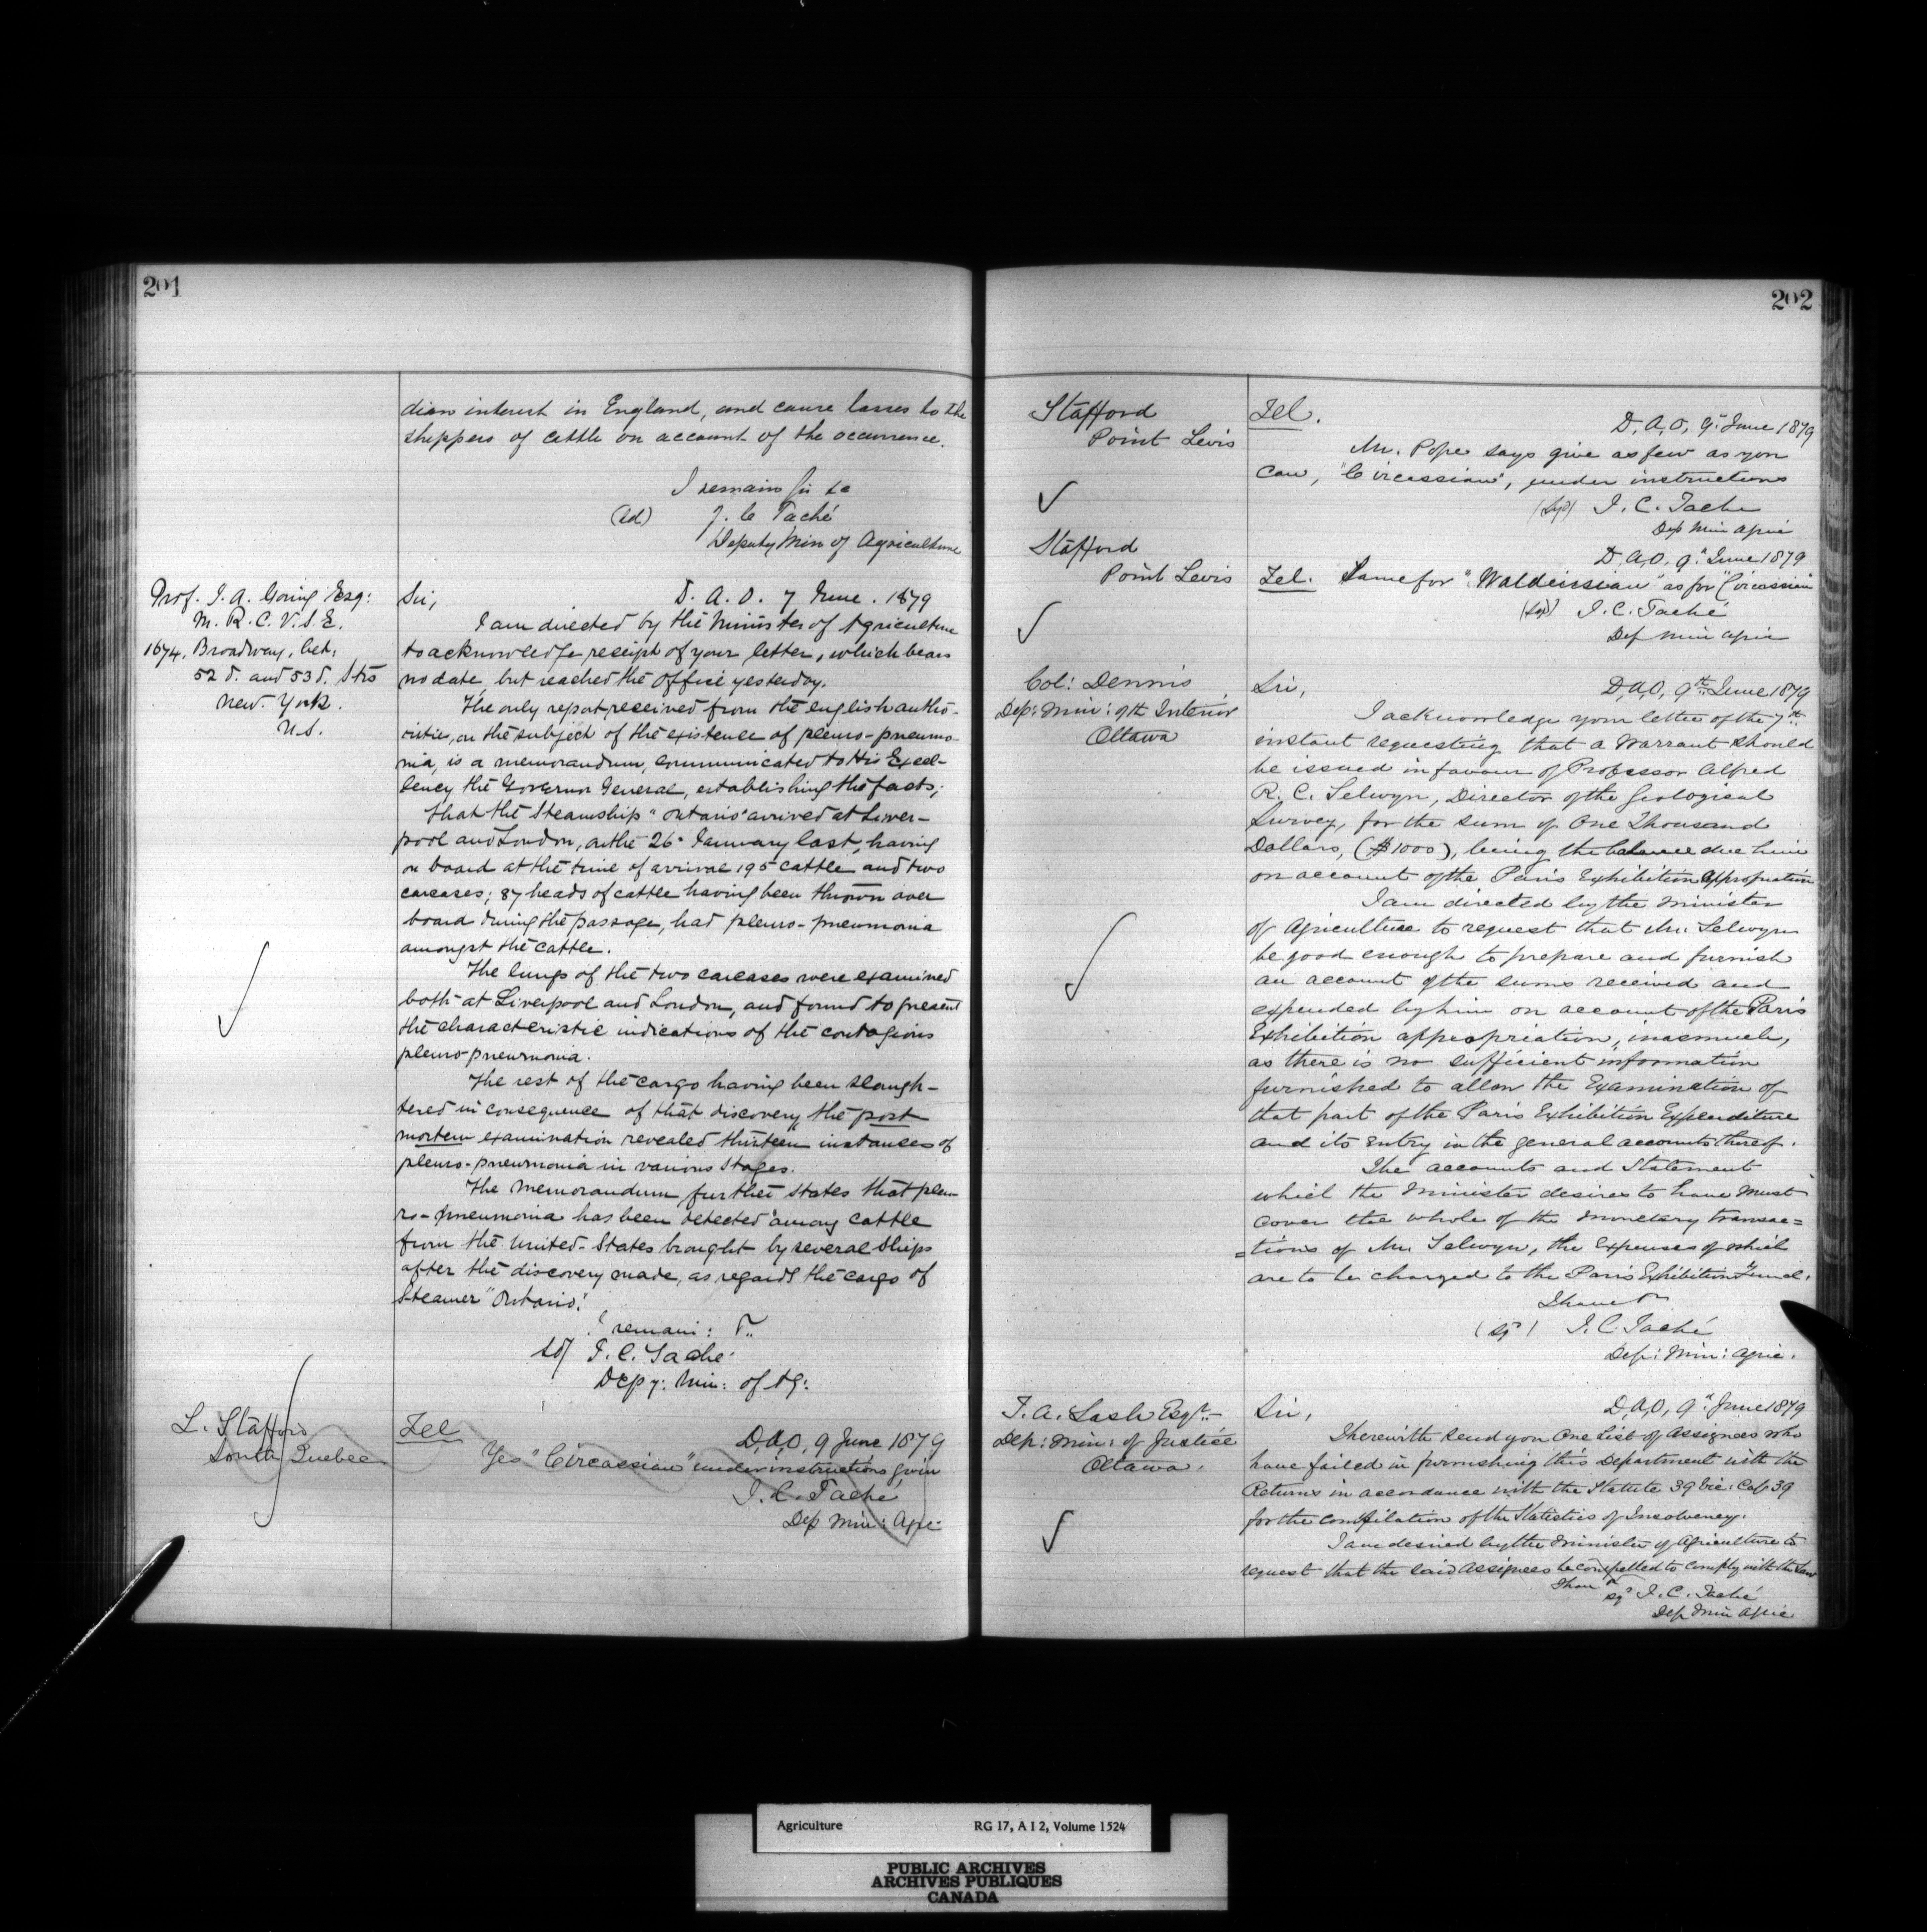 201
dian interest in England, and cause losses to the
shippers of cattle on account of the occurrence.
I remain Sir &c
(sd) J. C. Taché
Deputy Min of Agriculture
Prof. J. A. Going Esq:
M. R. C. V. S. E.
1674, Broadway, bet:
52d. and 53d. Strs
New. York.
U.S.
Sir, D. A. O. 7 June. 1879
I am directed by the Minister of Agriculture
to acknowledge receipt of your letter, which bears
no date, but reached the office yesterday.
The only report received from the english autho-
rities, on the subject of the existence of pleuro-pneumo-
nia, is a memorandum, communicated to His Excel-
lency the Governor General, establishing the facts;
that the Steamship "Ontario" arrived at Liver-
pool and London, on the 26" January last, having
on board at the time of arrival 195 cattle and two
carcases; 87 heads of cattle having been thrown over
board during the passage, had pleuro-pneumonia
amongst the cattle.
The lungs of the two carcases were examined
both at Liverpool and London, and found to present
the characteristic indications of the contagious
pleuro-pneumonia.
The rest of the cargo having been slaugh-
tered in consequence of that discovery, the post
mortem examination revealed thirteen instances of
pleuro-pneumonia in various stages.
The Memorandum further states that pleu-
ro-pneumonia has been detected "among cattle
from the United-States brought by several Ships
after the discovery made, as regards the cargo of
Steamer "Ontario."
I remain:
sd/ J. C. Taché
Depy: Min: of Ag:
L. Stafford
South Quebec
Tel
D,A,O, 9 June 1879
Yes "Circassian" under instructions given
J. C. Taché
Dep Min: Agri:
202
Stafford
Point Levis
Tel.
D, A, O, 9" June 1879
Mr. Pope says give as few as you
can, "Circassian", under instructions
(Sgd) J. C. Tache
Dep Min Agric
Stafford
Point Levis
D, A, O, 9" June 1879
Tel. Same for "Waldensian" as for "Circassian
(Sgd) J. C. Taché
Dep Min Agric
Col: Dennis
Dep: Min: of th Interior
Ottawa
Sir, D,A,O, 9th June 1879
I acknowledge your letter of the 7th
instant requesting that a Warrant should
be issued in favour of Professor Alfred
R. C. Selwyn, Director of the Geological
Survey, for the sum of One Thousand
Dollars, ($1000), being the balance due him
on account of the Paris Exhibition Appropriation
I am directed by the Minister
of Agriculture to request that Mr. Selwyn
be good enough to prepare and furnish
an account of the sums received and
expended by him on account of the Paris
Exhibition appropriation, inasmuch,
as there is no sufficient information
furnished to allow the Examination of
that part of the Paris Exhibition Expenditure
and its Entry in the general accounts thereof.
The accounts and Statement
which the Minister desires to have must
cover the whole of the monetary transac=
=tions of Mr. Selwyn, the Expenses of which
are to be charged to the Paris Exhibition Fund.
I have
(sgd) J. C. Taché
Dep: Min: Agric.
Z. A. Lash Esqr.
Dep: Min: of Justice
Ottawa.
Sir, D,A,O, 9" June 1879
I herewith send you One List of Assignees who
have failed in furnishing this Department with the
Returns in accordance with the Statute 39 Vic: Cap 39
for the compilation of the Statistics of Insolvency.
I am desired by the Minister of Agriculture to
request that the said Assignees be compelled to comply with the Law
I have
sgd J. C. Taché
Dep Min Agric
Agriculture RG 17, A I 2, Volume 1524
PUBLIC ARCHIVES
ARCHIVES PUBLIQUES
CANADA